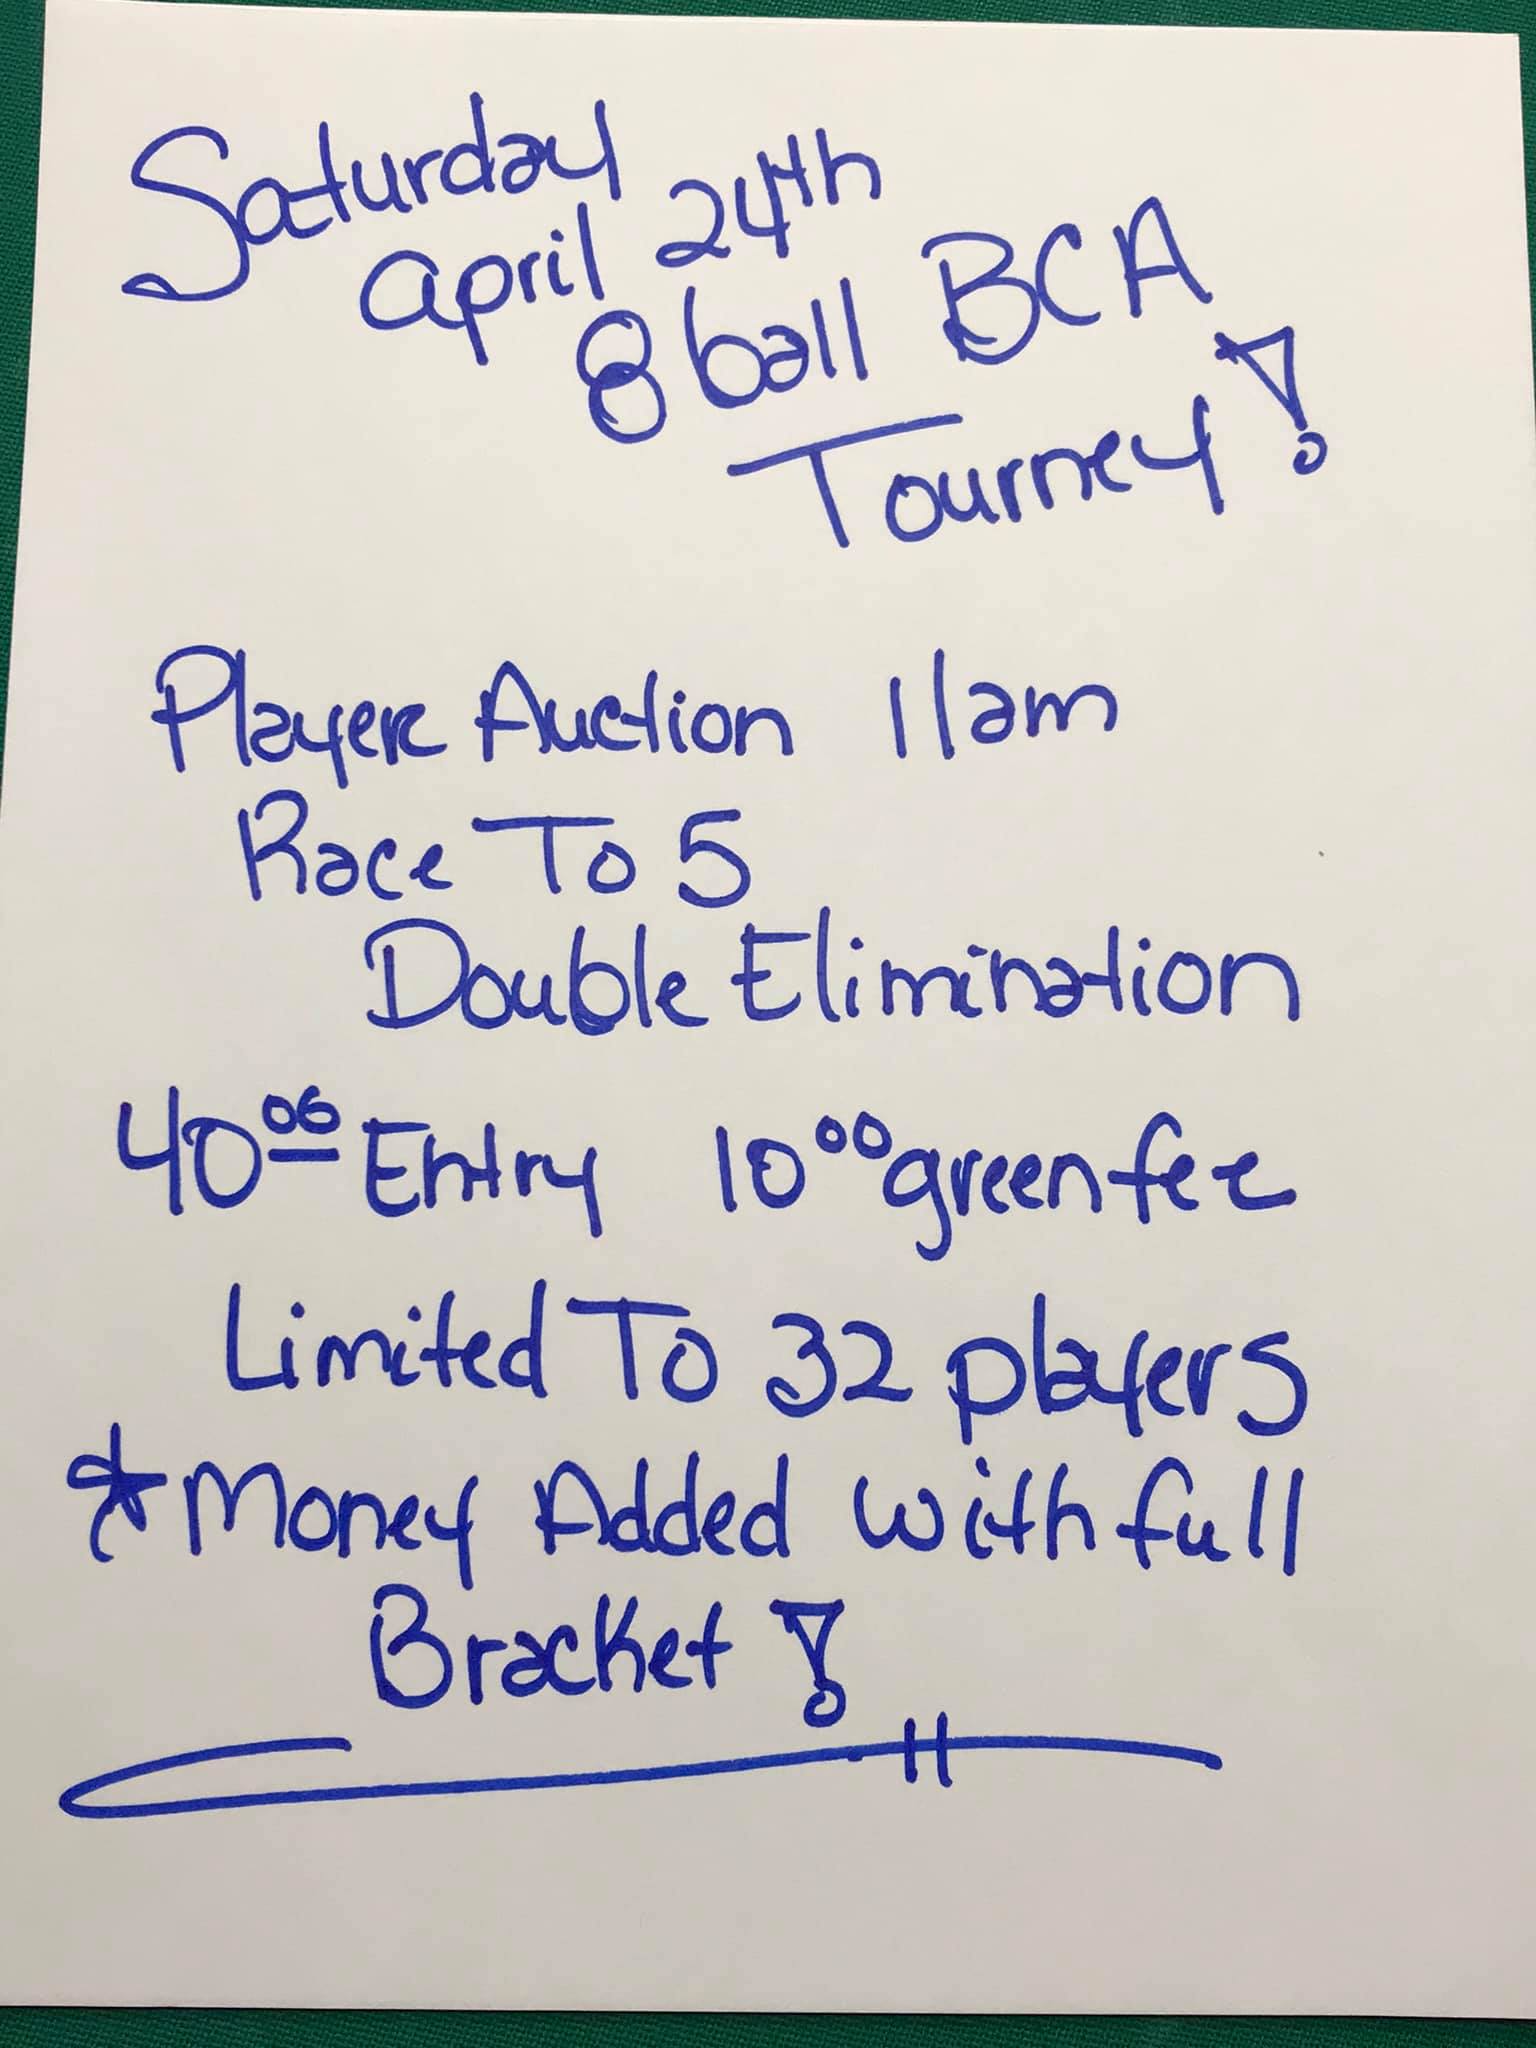 Saturday
April 24th
8 ball BCA
Tourney!
Player Auction 11am
Race To 5
Double Elimination
40.00 Entry 10.00 green fee
Limited To 32 players
*Money Added with full
Bracket!